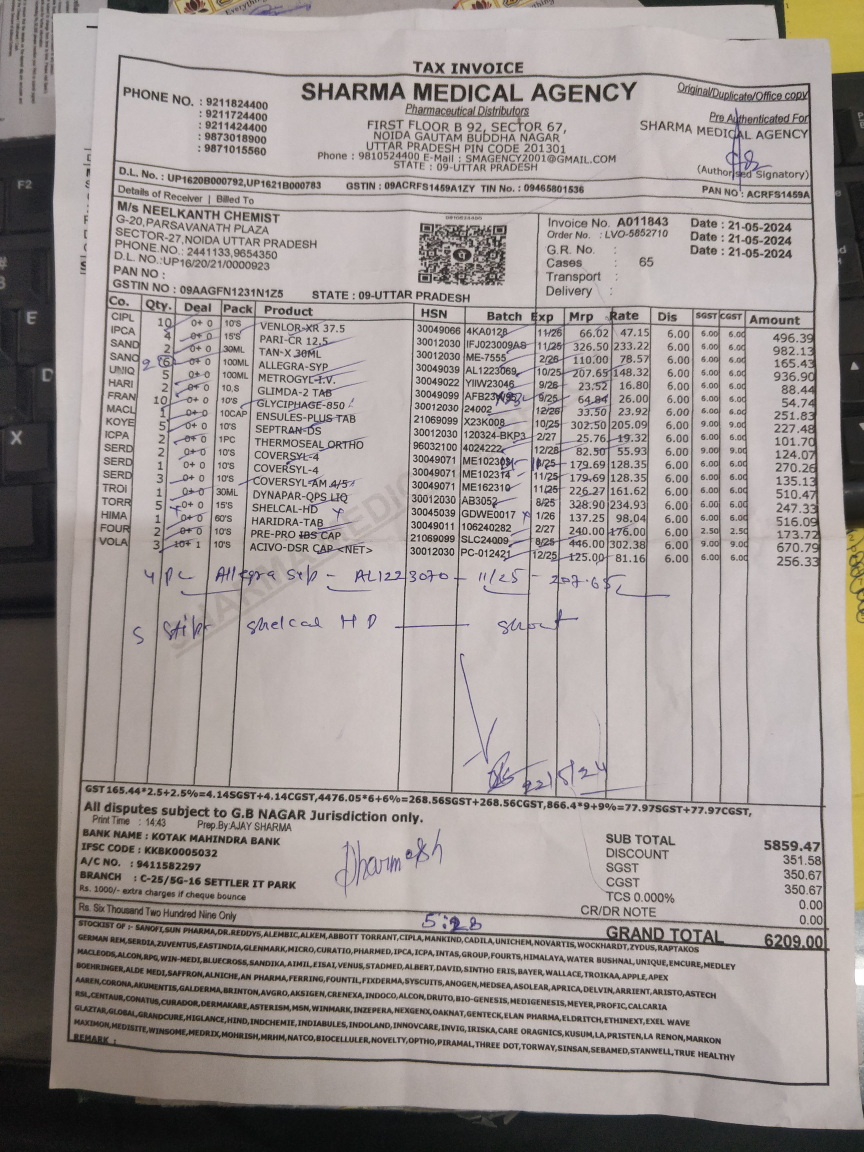 TAX INVOICE
Original/Duplicate/Office copy
SHARMA MEDICAL AGENCY
Pharmaceutical Distributors
FIRST FLOOR B 92, SECTOR 67,
NOIDA GAUTAM BUDDHA NAGAR
UTTAR PRADESH PIN CODE 201301
Phone : 9810524400 E-Mail : SMAGENCY2001@GMAIL.COM
STATE : 09-UTTAR PRADESH
PHONE NO. : 9211824400
: 9211724400
: 9211424400
: 9873018900
: 9871015560
Pre Authenticated For
SHARMA MEDICAL AGENCY
(Authorised Signatory)
D.L. No. : UP1620B000792,UP1621B000783 GSTIN : 09ACRFS1459A1ZY TIN No. : 09465801536 PAN NO : ACRFS1459A
Details of Receiver | Billed To
M/s NEELKANTH CHEMIST
G-20,PARSAVANATH PLAZA
SECTOR-27,NOIDA UTTAR PRADESH
PHONE.NO. : 2441133,9654350
D.L. NO.:UP16/20/21/0000923
PAN NO :
GSTIN NO : 09AAGFN1231N1Z5 STATE : 09-UTTAR PRADESH
Invoice No. A011843 Date : 21-05-2024
Order No. : LVO-5852710 Date : 21-05-2024
G.R. No. : Date : 21-05-2024
Cases : 65
Transport :
Delivery :
Co. Qty. Deal Pack Product HSN Batch Exp Mrp Rate Dis SGST CGST Amount
CIPL 10 0+ 0 10'S VENLOR-XR 37.5 30049066 4KA0128 11/26 66.02 47.15 6.00 6.00 6.00 496.39
IPCA 4 0+ 0 15'S PARI-CR 12.5 30012030 IFJ023009AS 11/26 326.50 233.22 6.00 6.00 6.00 982.13
SAND 2 0+ 0 30ML TAN-X 30ML 30012030 ME-7555 2/26 110.00 78.57 6.00 6.00 6.00 165.43
SANO 2 6 0+ 0 100ML ALLEGRA-SYP 30049039 AL1223069 10/25 207.65 148.32 6.00 6.00 6.00 936.90
UNIQ 5 0+ 0 100ML METROGYL-I.V. 30049022 YIIW23046 9/26 23.52 16.80 6.00 6.00 6.00 88.44
HARI 2 0+ 0 10,S GLIMDA-2 TAB 30049099 9/25 64.84 26.00 6.00 6.00 6.00 54.74
FRAN 10 0+ 0 10'S GLYCIPHAGE-850 30012030 24002 12/26 33.50 23.92 6.00 6.00 6.00 251.83
MACL 1 0+ 0 10CAP ENSULES-PLUS TAB 21069099 X23K008 10/25 302.50 205.09 6.00 9.00 9.00 227.48
KOYE 5 0+ 0 10'S SEPTRAN-DS 30012030 120324-BKP3 2/27 25.76 19.32 6.00 6.00 6.00 101.70
ICPA 2 0+ 0 1PC THERMOSEAL ORTHO 96032100 4024222 12/28 82.50 55.93 6.00 9.00 9.00 124.07
SERD 2 0+ 0 10'S COVERSYL-4 30049071 179.69 128.35 6.00 6.00 6.00 270.26
SERD 1 0+ 0 10'S COVERSYL-4 30049071 ME102314 11/25 179.69 128.35 6.00 6.00 6.00 135.13
SERD 3 0+ 0 10'S COVERSYL-AM 4/5 30049071 ME162310 11/25 226.27 161.62 6.00 6.00 6.00 510.47
TROI 1 0+ 0 30ML DYNAPAR-QPS LIQ 30012030 AB3052 8/25 328.90 234.93 6.00 6.00 6.00 247.33
TORR 5 0+ 0 15'S SHELCAL-HD 30045039 GDWE0017 1/26 137.25 98.04 6.00 6.00 6.00 516.09
HIMA 1 0+ 0 60'S HARIDRA-TAB 30049011 106240282 2/27 240.00 176.00 6.00 2.50 2.50 173.72
FOUR 2 0+ 0 10'S PRE-PRO IBS CAP 21069099 SLC24009 8/25 446.00 302.38 6.00 9.00 9.00 670.79
VOLA 3 10+ 1 10'S ACIVO-DSR CAP <NET> 30012030 PC-012421 12/25 125.00 81.16 6.00 6.00 6.00 256.33
4 Pc Allegra Syp - AL1223070 - 11/25 - 207.65
5 Stip Shelcal HD - short
22/5/24
GST 165.44*2.5+2.5%=4.14SGST+4.14CGST,4476.05*6+6%=268.56SGST+268.56CGST,866.4*9+9%=77.97SGST+77.97CGST,
All disputes subject to G.B NAGAR Jurisdiction only.
Print Time : 14:43 Prep.By:AJAY SHARMA
BANK NAME : KOTAK MAHINDRA BANK
IFSC CODE : KKBK0005032
A/C NO. : 9411582297
BRANCH : C-25/5G-16 SETTLER IT PARK
Rs. 1000/- extra charges if cheque bounce
Dharmesh
SUB TOTAL 5859.47
DISCOUNT 351.58
SGST 350.67
CGST 350.67
TCS 0.000% 0.00
CR/DR NOTE 0.00
Rs. Six Thousand Two Hundred Nine Only
5:28
GRAND TOTAL 6209.00
STOCKIST OF :- SANOFI,SUN PHARMA,DR.REDDYS,ALEMBIC,ALKEM,ABBOTT TORRANT,CIPLA,MANKIND,CADILA,UNICHEM,NOVARTIS,WOCKHARDT,ZYDUS,RAPTAKOS
GERMAN REM,SERDIA,ZUVENTUS,EASTINDIA,GLENMARK,MICRO,CURATIO,PHARMED,IPCA,ICPA,INTAS,GROUP,FOURTS,HIMALAYA,WATER BUSHNAL,UNIQUE,EMCURE,MEDLEY
MACLEODS,ALCON,RPG,WIN-MEDI,BLUECROSS,SANDIKA,AIMIL,EISAI,VENUS,STADMED,ALBERT,DAVID,SINTHO ERIS,BAYER,WALLACE,TROIKAA,APPLE,APEX
BOEHRINGER,ALDE MEDI,SAFFRON,ALNICHE,AN PHARMA,FERRING,FOUNTIL,FIXDERMA,SYSCUITS,ANOGEN,MEDSEA,ASOLEAR,APRICA,DELVIN,ARRIENT,ARISTO,ASTECH
AAREN,CORONA,AKUMENTIS,GALDERMA,BRINTON,AVGRO,AKSIGEN,CRENEXA,INDOCO,ALCON,DRUTO,BIO-GENESIS,MEDIGENESIS,MEYER,PROFIC,CALCARIA
RSL,CENTAUR,CONATUS,CURADOR,DERMAKARE,ASTERISM,MSN,WINMARK,INZEPERA,NEXGENX,OAKNAT,GENTECK,ELAN PHARMA,ELDRITCH,ETHINEXT,EXEL WAVE
GLAZTAR,GLOBAL,GRANDCURE,HIGLANCE,HIND,INDCHEMIE,INDIABULES,INDOLAND,INNOVCARE,INVIG,IRISKA,CARE ORAGNICS,KUSUM,LA,PRISTEN,LA RENON,MARKON
MAXIMON,MEDISITE,WINSOME,MEDRIX,MOHRISH,MRHM,NATCO,BIOCELLULER,NOVELTY,OPTHO,PIRAMAL,THREE DOT,TORWAY,SINSAN,SEBAMED,STANWELL,TRUE HEALTHY
REMARK :